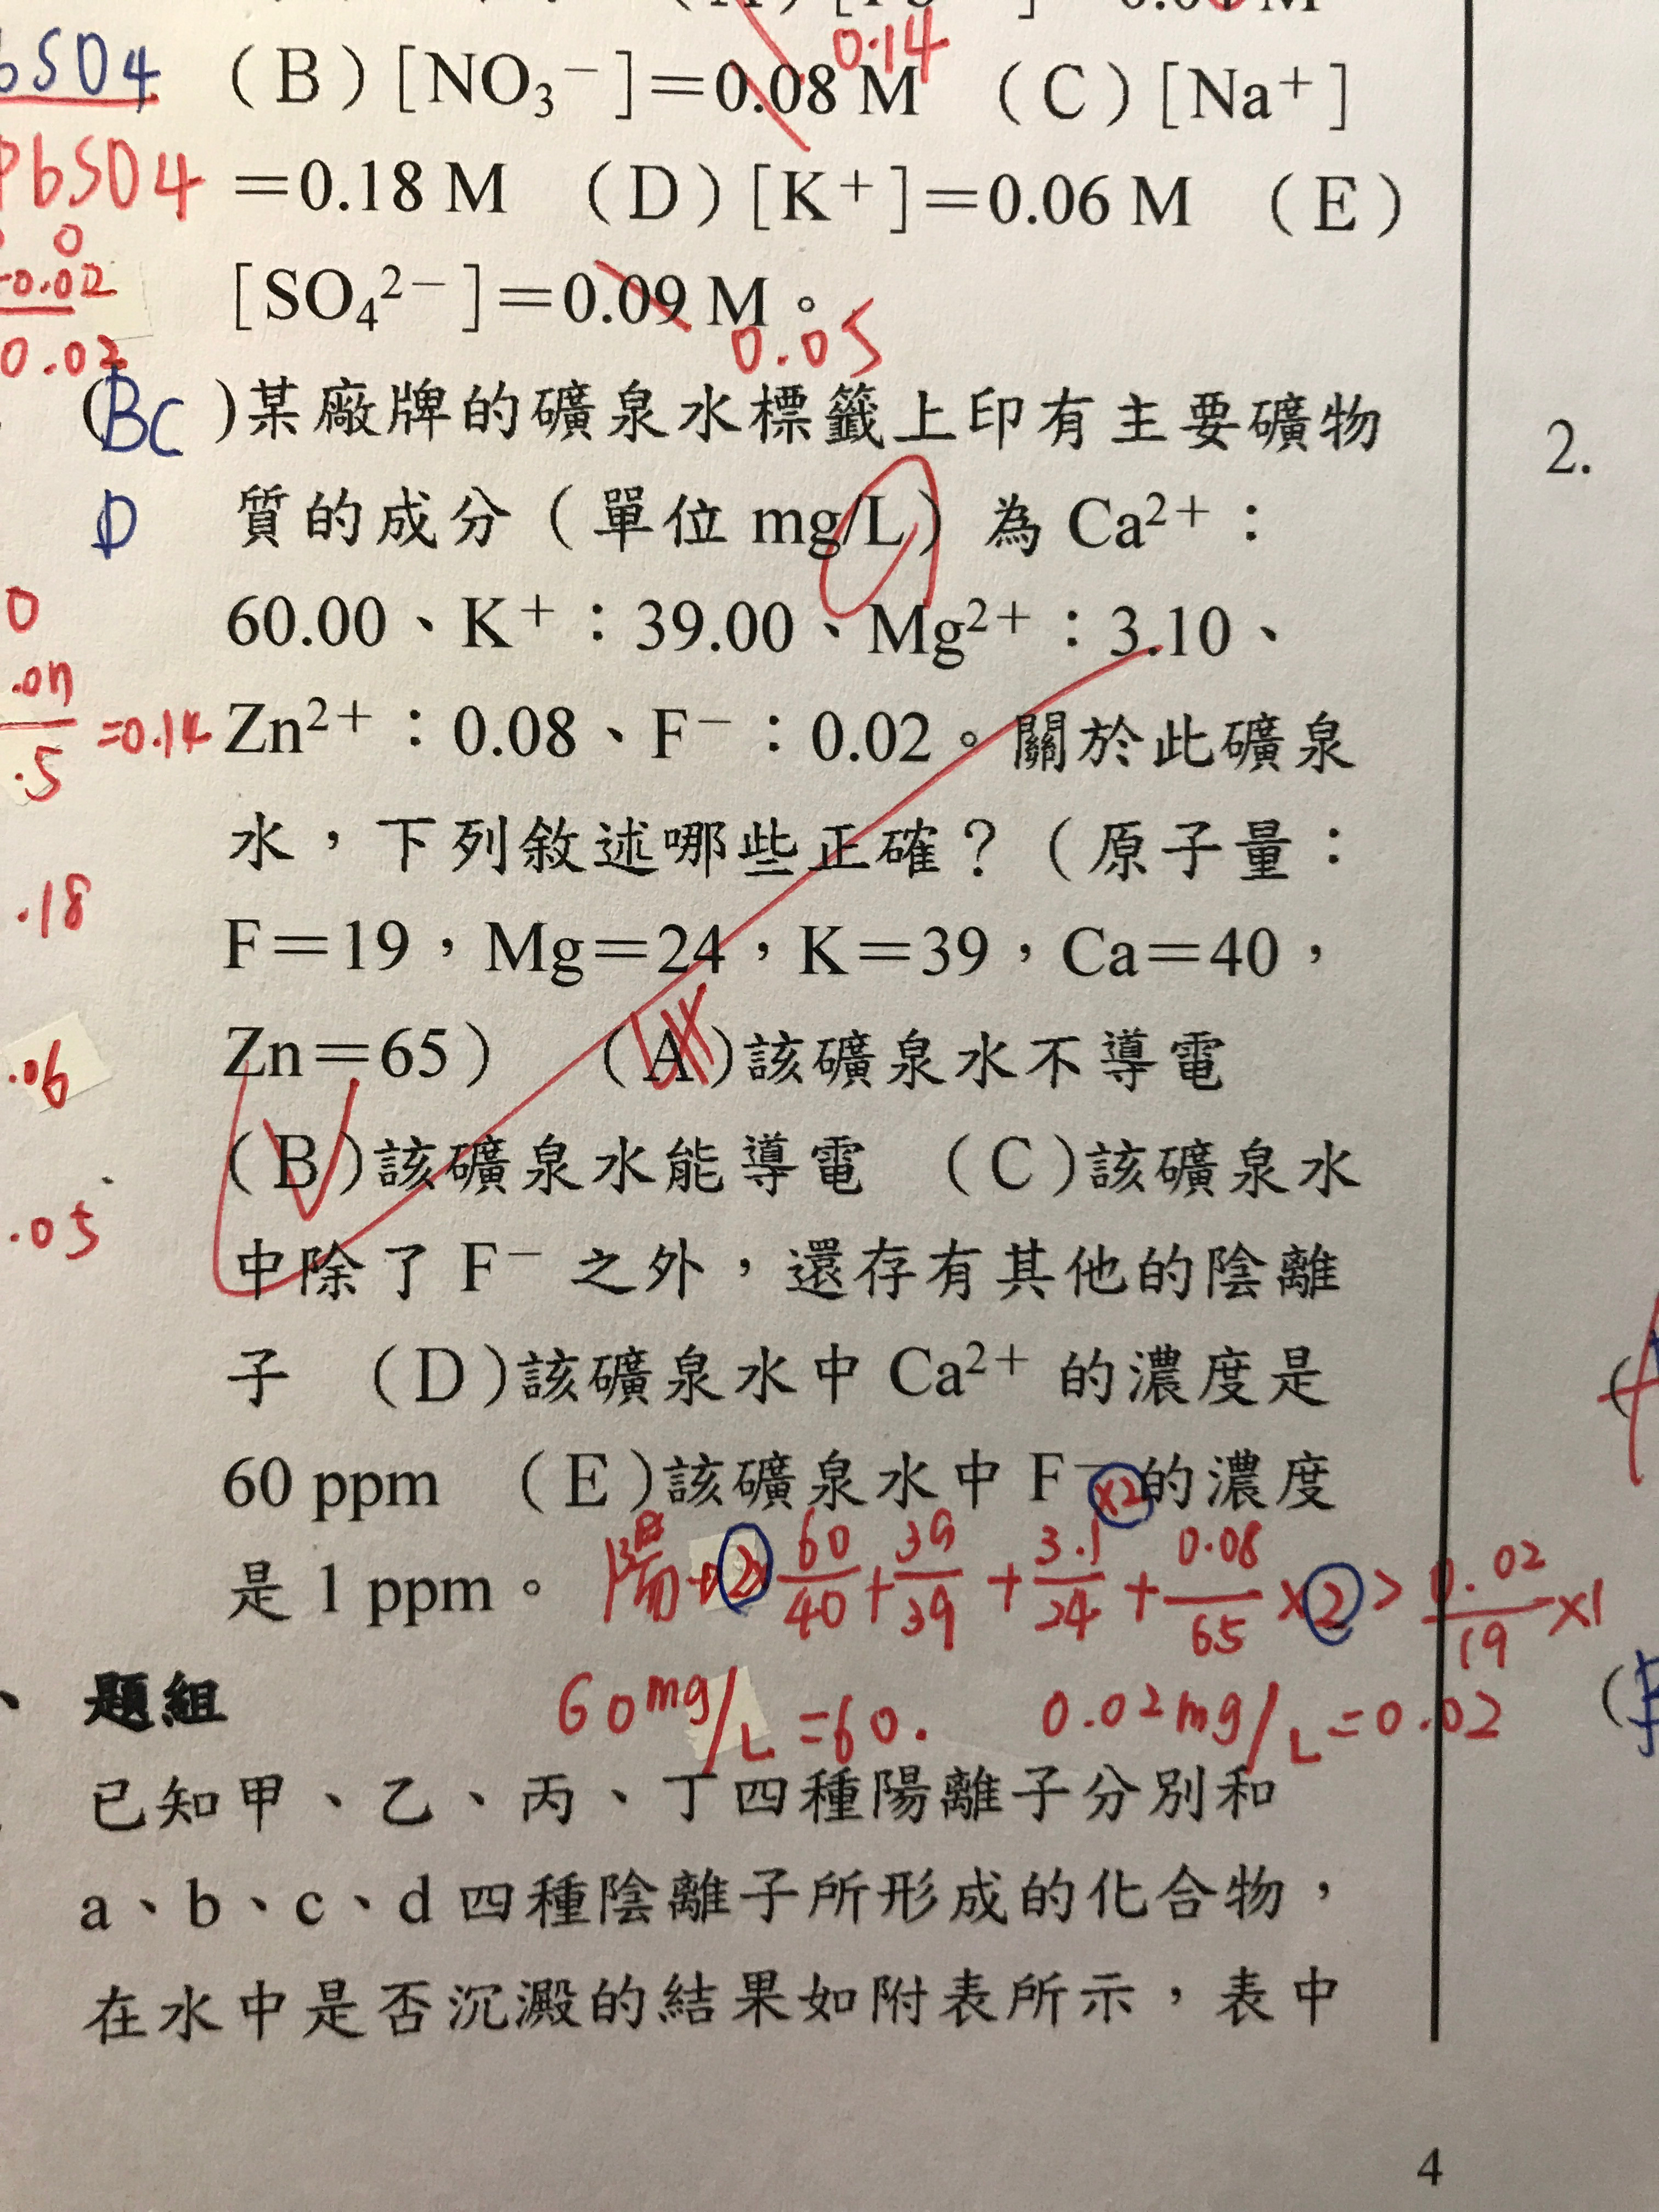 bSO4 (B)[NO₃⁻]=0.08 M (C)[Na⁺]
0.14
PbSO4 =0.18 M (D)[K⁺]=0.06 M (E)
0
-0.02 [SO₄²⁻]=0.09 M。
0.02 0.05
(BC )某廠牌的礦泉水標籤上印有主要礦物
D 質的成分(單位 mg/L)為 Ca²⁺:
0 60.00、K⁺:39.00、Mg²⁺:3.10、
Zn²⁺:0.08、F⁻:0.02。關於此礦泉
=0.14
.5
水,下列敘述哪些正確?(原子量:
.18 F=19,Mg=24,K=39,Ca=40,
.06 Zn=65) (A)該礦泉水不導電
(B)該礦泉水能導電 (C)該礦泉水
.05 中除了 F⁻ 之外,還存有其他的陰離
子 (D)該礦泉水中 Ca²⁺ 的濃度是
60 ppm (E)該礦泉水中 F⁻ 的濃度
×2
是 1 ppm。 陽 2× 60/40 + 39/39 + 3.1/24 + 0.08/65 ×2 > 0.02/19 ×1
60mg/L =60. 0.02mg/L=0.02
、 題組
已知甲、乙、丙、丁四種陽離子分別和
a、b、c、d 四種陰離子所形成的化合物,
在水中是否沉澱的結果如附表所示,表中
2.
4